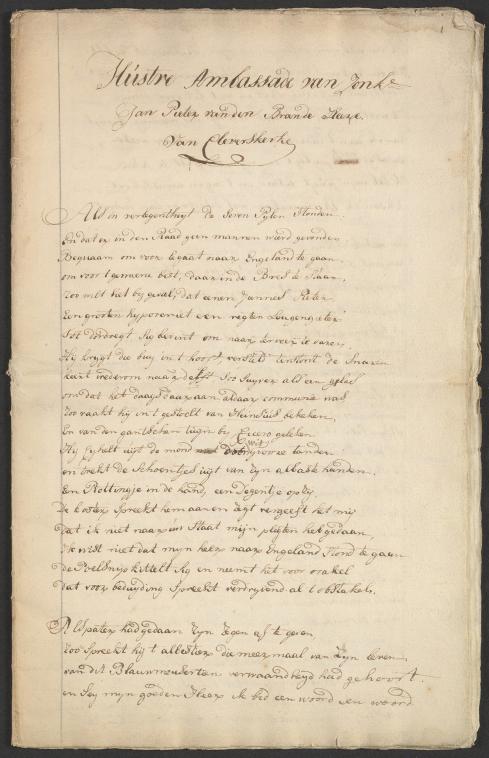 Illustre Ambassade van Jonkr
Jan Pieter vanden Brande Heer
Van Cleverskerke
Als in verlegentheyt de Seven Pylen Stonden
En dat er in den Raad geen mannen wierd gevonden
Bequaam om voor Legaat naar Engeland te gaan
om voor t gemeene best, daar in de Bres te staan
Zoo
Een grooten hypocriet een regten Leugengieter
Tot dordregt Sig bevint om naar ter veer te varen
Hy krygt die buy int hooft, verstelt terstont de Snaren
keert wederom naar delft Soo Suyver als een glas
omdat het daags daar aan aldaar communie was
Zoo raakt hy in t gestoelt van Heinsius bekeken
En van den gantschen by Cicero geleken
Hy uyt de mond wit yvoore tanden
en trekt de Schoentjes uyt van Zyn albaste handen
Een Rottingje in de hand, een Degentje op Zy
De koster Spreekt hem aan en Zegt vergeeft het my
dat ik niet naar uw Staat mijn pligten heb gedaan,
Ik wist niet dat myn heer naar Engeland Stond te gaan
de Sig en neemt het voor orakel
dat voor beduyding Spreekt verdryvend al t obstakel.
Als pater had gedaan Zyn Zegen af te geven
Zoo Spreekt hy t die meermaal van Zyn leven
van d' verwaandheyd had gehoort.
en Sey myn goeden Heer Ik bid een woord een woord